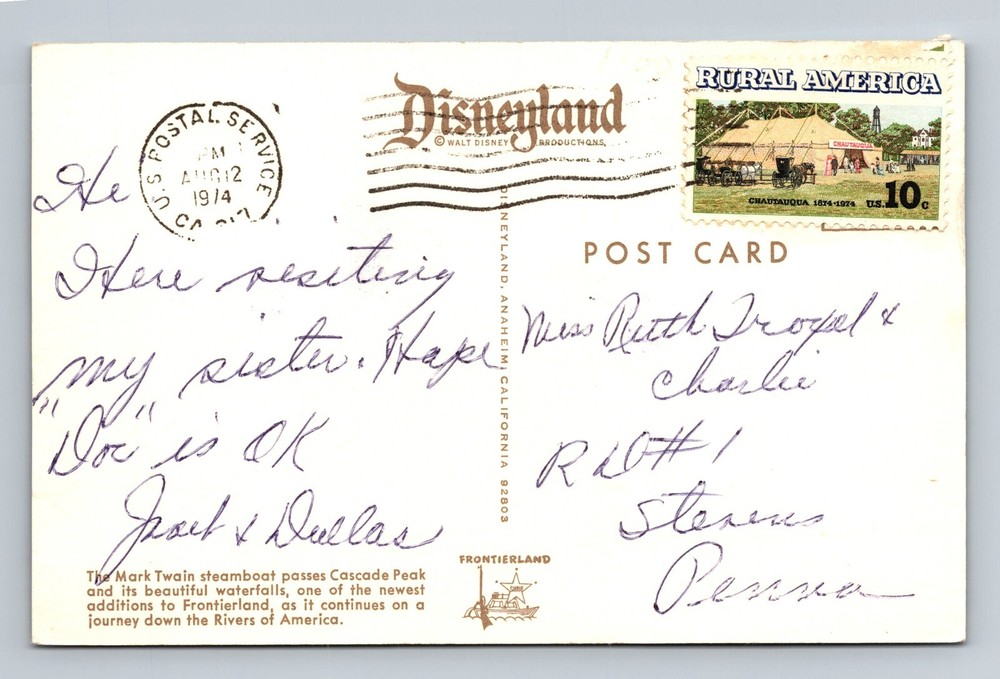 U.S. POSTAL SERVICE
PM
AUG 12
1974
CA
Disneyland
© WALT DISNEY PRODUCTIONS
RURAL AMERICA
CHAUTAUQUA
CHAUTAUQUA 1874-1974 U.S. 10c
POST CARD
He
Here visiting
my sister. Hope
"Doc" is OK
& Dallas
DISNEYLAND, ANAHEIM, CALIFORNIA 92803
Miss Ruth Troxel &
Charlie
RD #1
Stevens
Penna
The Mark Twain steamboat passes Cascade Peak
and its beautiful waterfalls, one of the newest
additions to Frontierland, as it continues on a
journey down the Rivers of America.
FRONTIERLAND